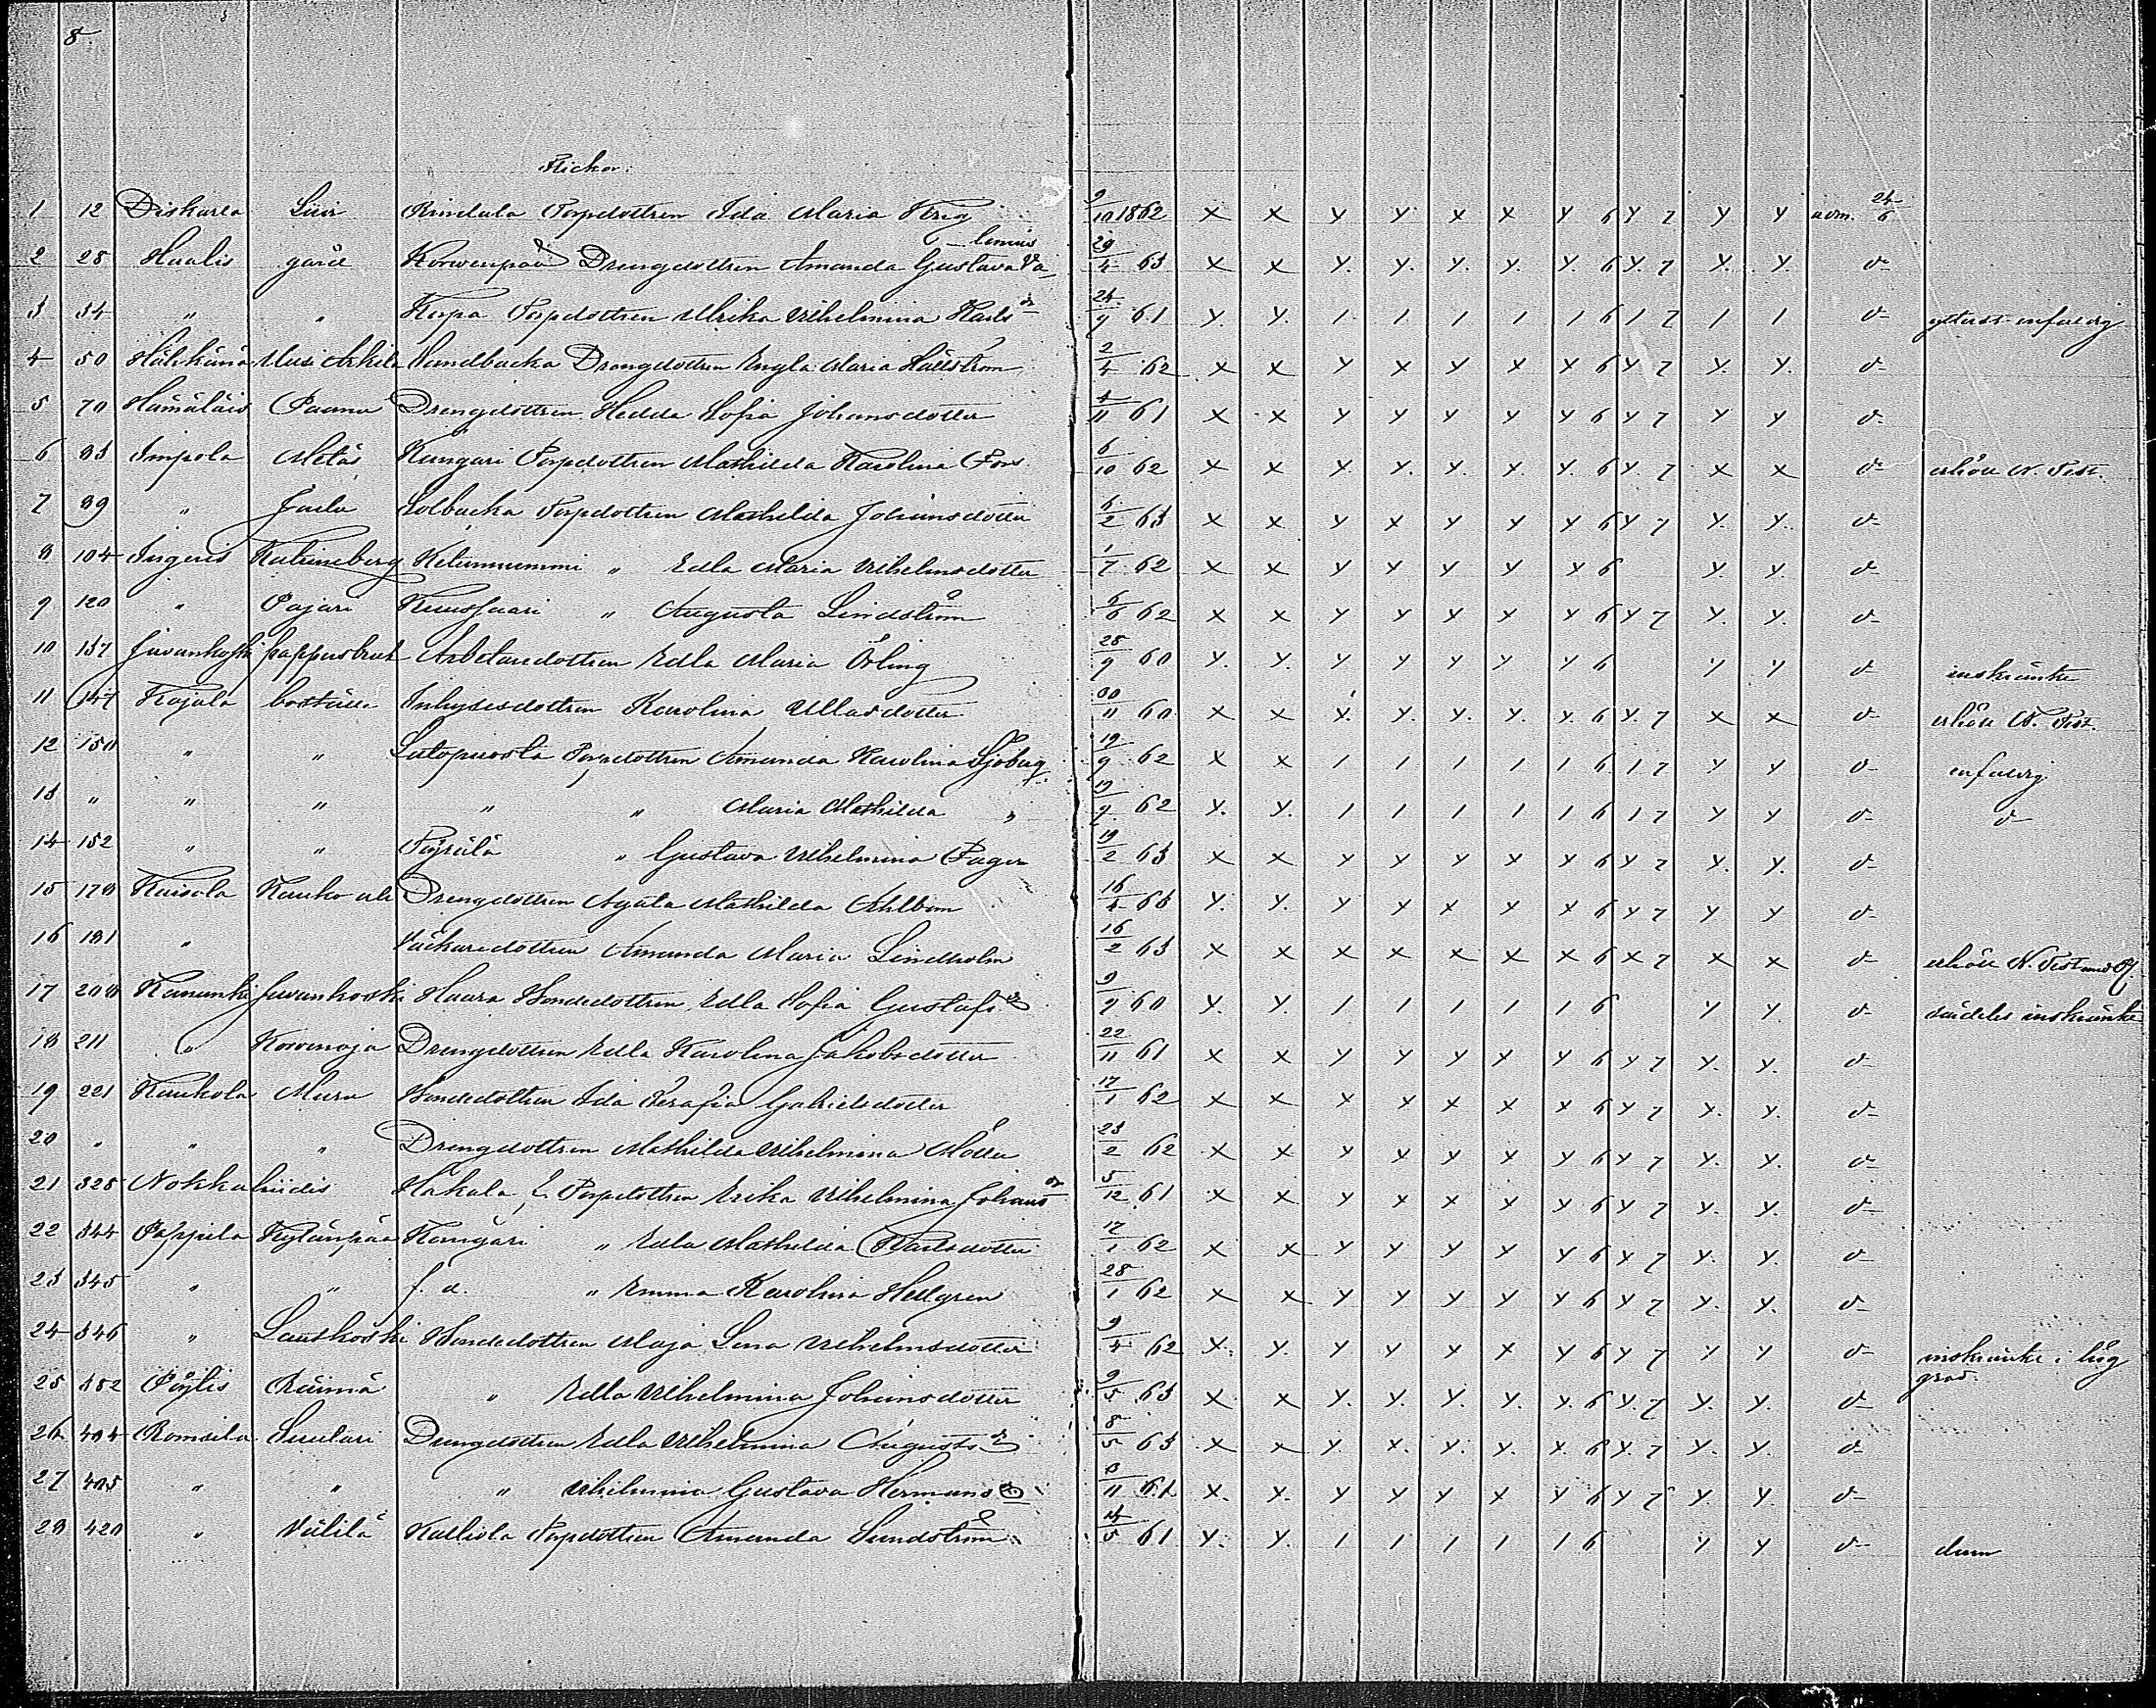 8.
Flickor.
1 12 Diskarla Liur Rindala Torpdottren Ida Maria Krig 9/10 1862 x x y y x x y 6 y 7 y y adm. 24/6
— lenius
2 28 Haalis gård Korvenpää Drengdottren Amanda Gustava Va- 29/4 63 x x y. y. y. y. y. 6 y. 7 y. y. d-
3 34 " " Korpa Torpdottren Ulrika Vilhelmina Karls dr 24/9 61 y. y. 1 1 1 1 1 6 1 7 1 1 d- ytterst enfaldig
4 50 Uusi Arkila Sandbacka Drengdottren Engla Maria Hällström 2/4 62 x x y x y x x 6 y 7 y. y. d-
5 70 Hämäläis Paanu Drengdottren Hedda Sofia Johansdotter 4/11 61 x x y y y y y 6 y 7 y y d-
6 83 Impola Metäs Kungari Torpdottren Mathilda Karolina Fors 6/10 62 x x y y. y. y. y. 6 y. 7 x x d- erhöll N. Test.
7 89 " Jaala Solbacka Torpdottren Mathilda Johansdotter 6/2 63 x x y x y y y 6 y 7 y. y. d-
8 104 Ingeris Katrineberg Ketunnummi " Edla Maria Vilhelmsdotter 1/7 62 x x y y y y x 6 y. y. d-
9 120 " Pajari Kuussaari " Augusta Lindström 6/6 62 x x y y x x y 6 y 7 y. y. d-
10 137 Juvankoski pappersbruk Arbetaredottren Edla Maria Örling 28/9 60 y. y. y y y y y 6 y y d- inskränkt
11 147 Kojola boställe Inhysesdottren Karolina Ullasdotter 30/11 60 x x y. y. y. y. y. 6 y. 7 x x d- erhöll N. Test.
12 150 " " Latopuosta Torpdottren Amanda Karolina Sjöberg 19/9 62 x x 1 1 1 1 1 6 1 7 y y d- enfaldig
13 " " " " " Maria Mathilda " 19/9 62 y. y. 1 1 1 1 1 6 1 7 y y d- d-
14 152 " " Pöyrälä " Gustava Vilhelmina Pager 19/2 63 x x y y y x y 6 y 7 y. y. d-
15 178 Kaisela Kauko Drengdottren Agata Mathilda Ahlbom 16/4 63 y. y. y x x y x 6 y 7 y y d-
16 181 " Amanda Maria Lindholm 16/2 63 x x x x x x x 6 x 7 x x d- erhöll N. Test
17 200 Kanunki Juvankoski Haara Bondedottren Edla Sofia Gustafs dr 9/9 60 y. y. 1 1 1 1 1 6 y y. d- särdeles inskränkt
18 211 " Korvenoja Drengdottren Edla Karolina Jakobsdotter 22/11 61 x x y y y x y 6 y 7 y. y. d-
19 221 Kaukola Muru Bondedottren Ida Serafia Gabrielsdotter 17/1 62 x x x x x x x 6 y 7 y. y. d-
20 " " " Drengdottren Mathilda Vilhelmina Möller 23/2 62 x x x y y y y 6 y 7 y. y. d-
21 328 Nokka hiidis Hakala Torpdottren Erika Vilhelmina Johans dr 5/12 61 x x y x x x y 6 y 7 y. y. d-
22 344 Pappila Kylänpää Kungari " Edla Mathilda Karlsdotter 17/1 62 x x y y y x y 6 y 7 y. y. d-
23 345 " " f. d. " Emma Karolina Hellgren 28/1 62 x x y y y y y 6 y 7 y. y. d-
24 346 " Lautkoski Bondedottren Maja Lena Vilhelmsdotter 9/4 62 x. y. y y x x y 6 y 7 y y d- inskränkt i hög
grad.
25 382 Pöytis Räimä " Edla Vilhelmina Johansdotter 9/5 63 x x y. y. y. y. y. 6 y. 7 y. y. d-
26 404 Romsila Seulari Drengdottren Edla Vilhelmina Augusts dr 8/5 63 x x y x. y. y. x. 6 y. 7 y. y. d-
27 405 " " " Vilhelmina Gustava Hermans dr 8/11 61 x. x. y y y x y 6 y 7 y y. d-
28 420 " Välilä Kalliola Torpdottren Amanda Sundström 14/5 61 y. y. 1 1 1 1 1 6 y y d- dum